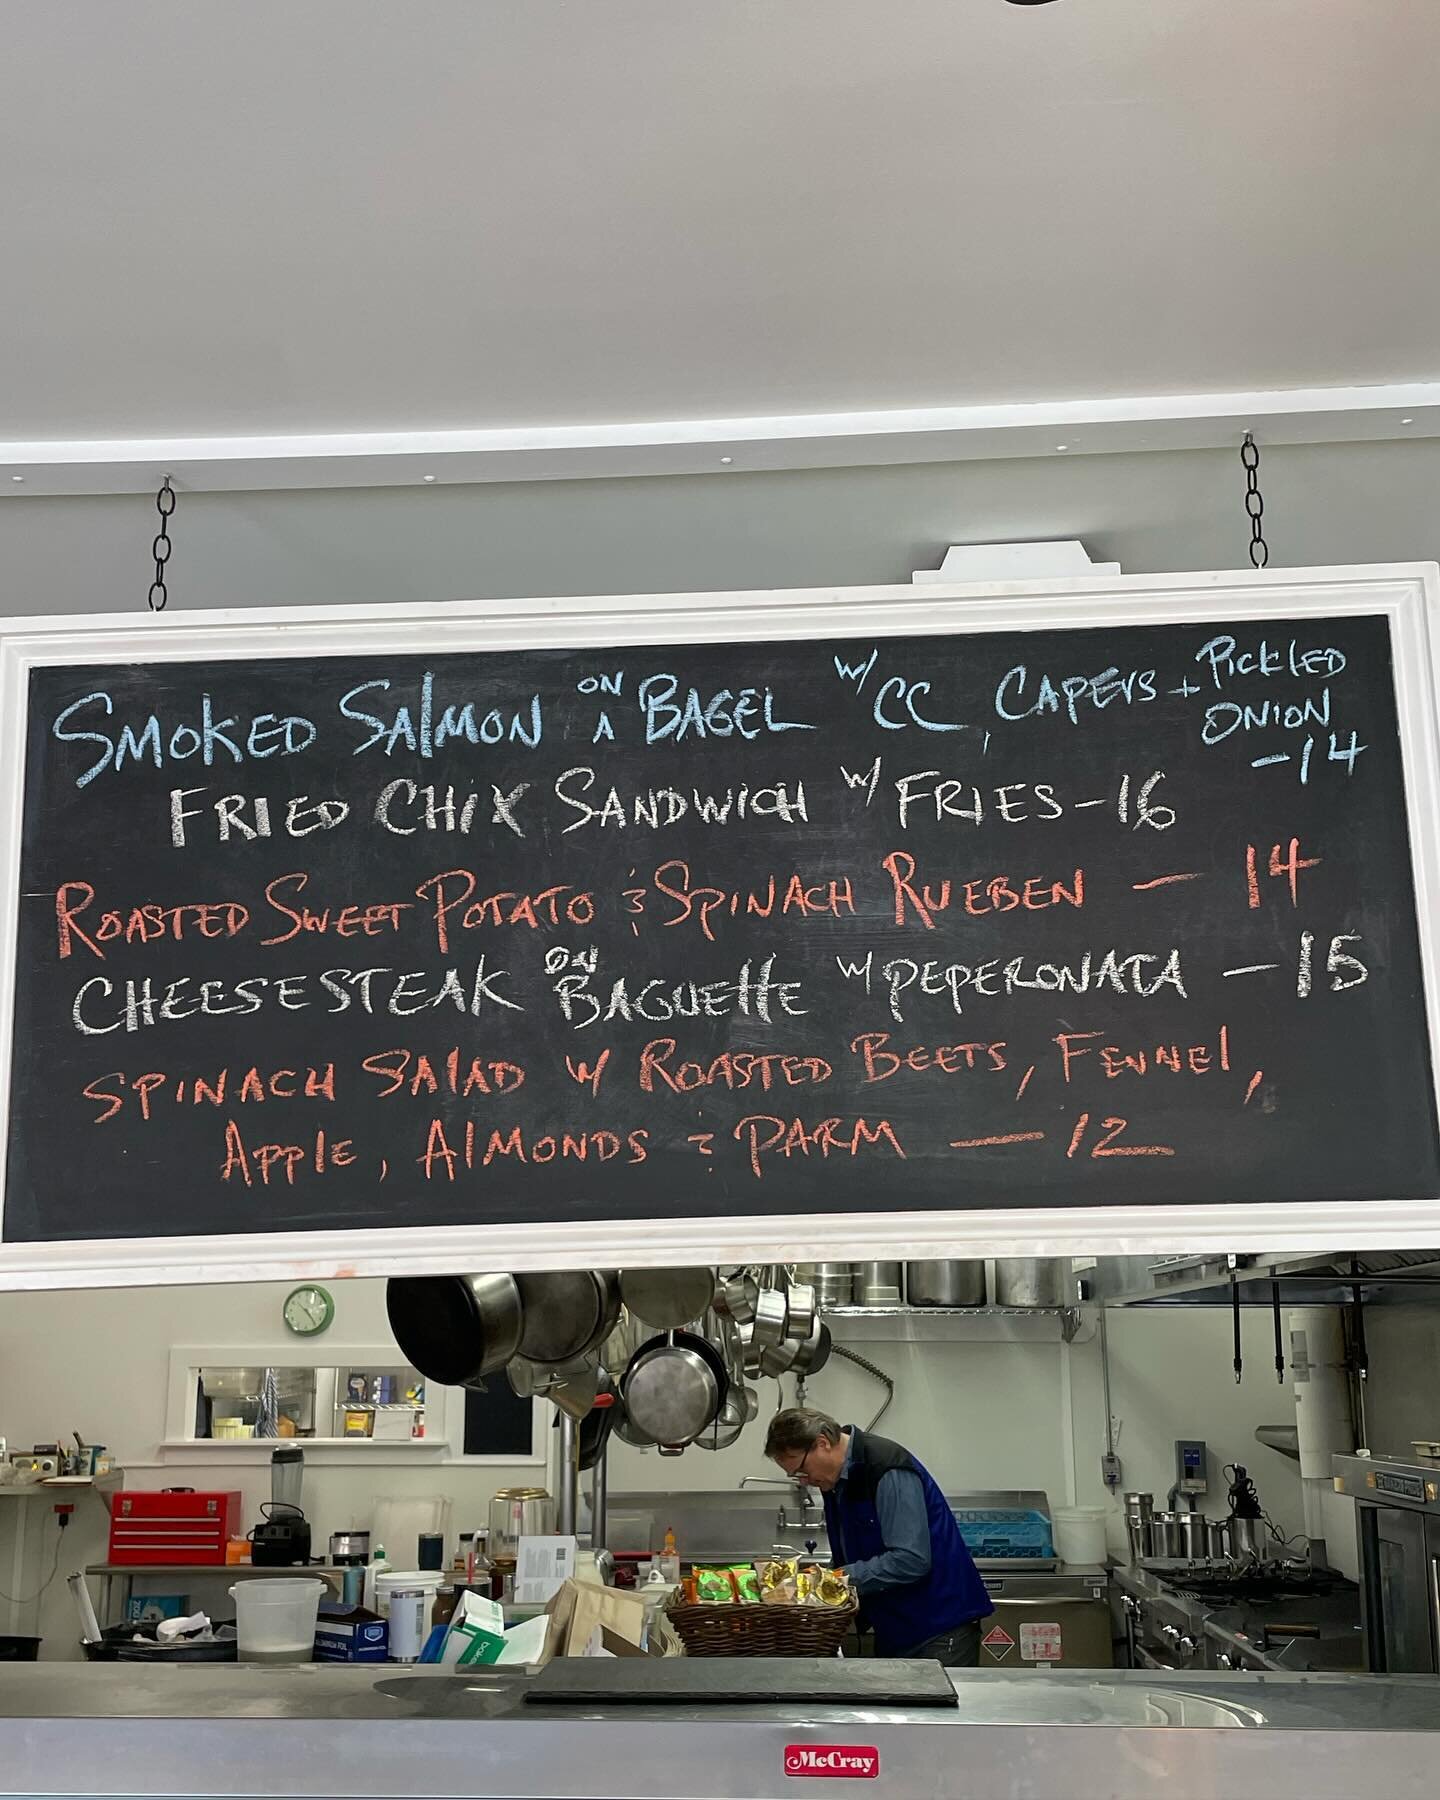 SMOKED SALMON ON A BAGEL w/ CC, CAPERS + PICKLED ONION -14
FRIED CHIX SANDWICH w/ FRIES-16
ROASTED SWEET POTATO & SPINACH RUEBEN - 14
CHEESESTEAK ON BAGUETTE w/ PEPERONATA - 15
SPINACH SALAD w/ ROASTED BEETS, FENNEL,
APPLE, ALMONDS & PARM - 12
McCray